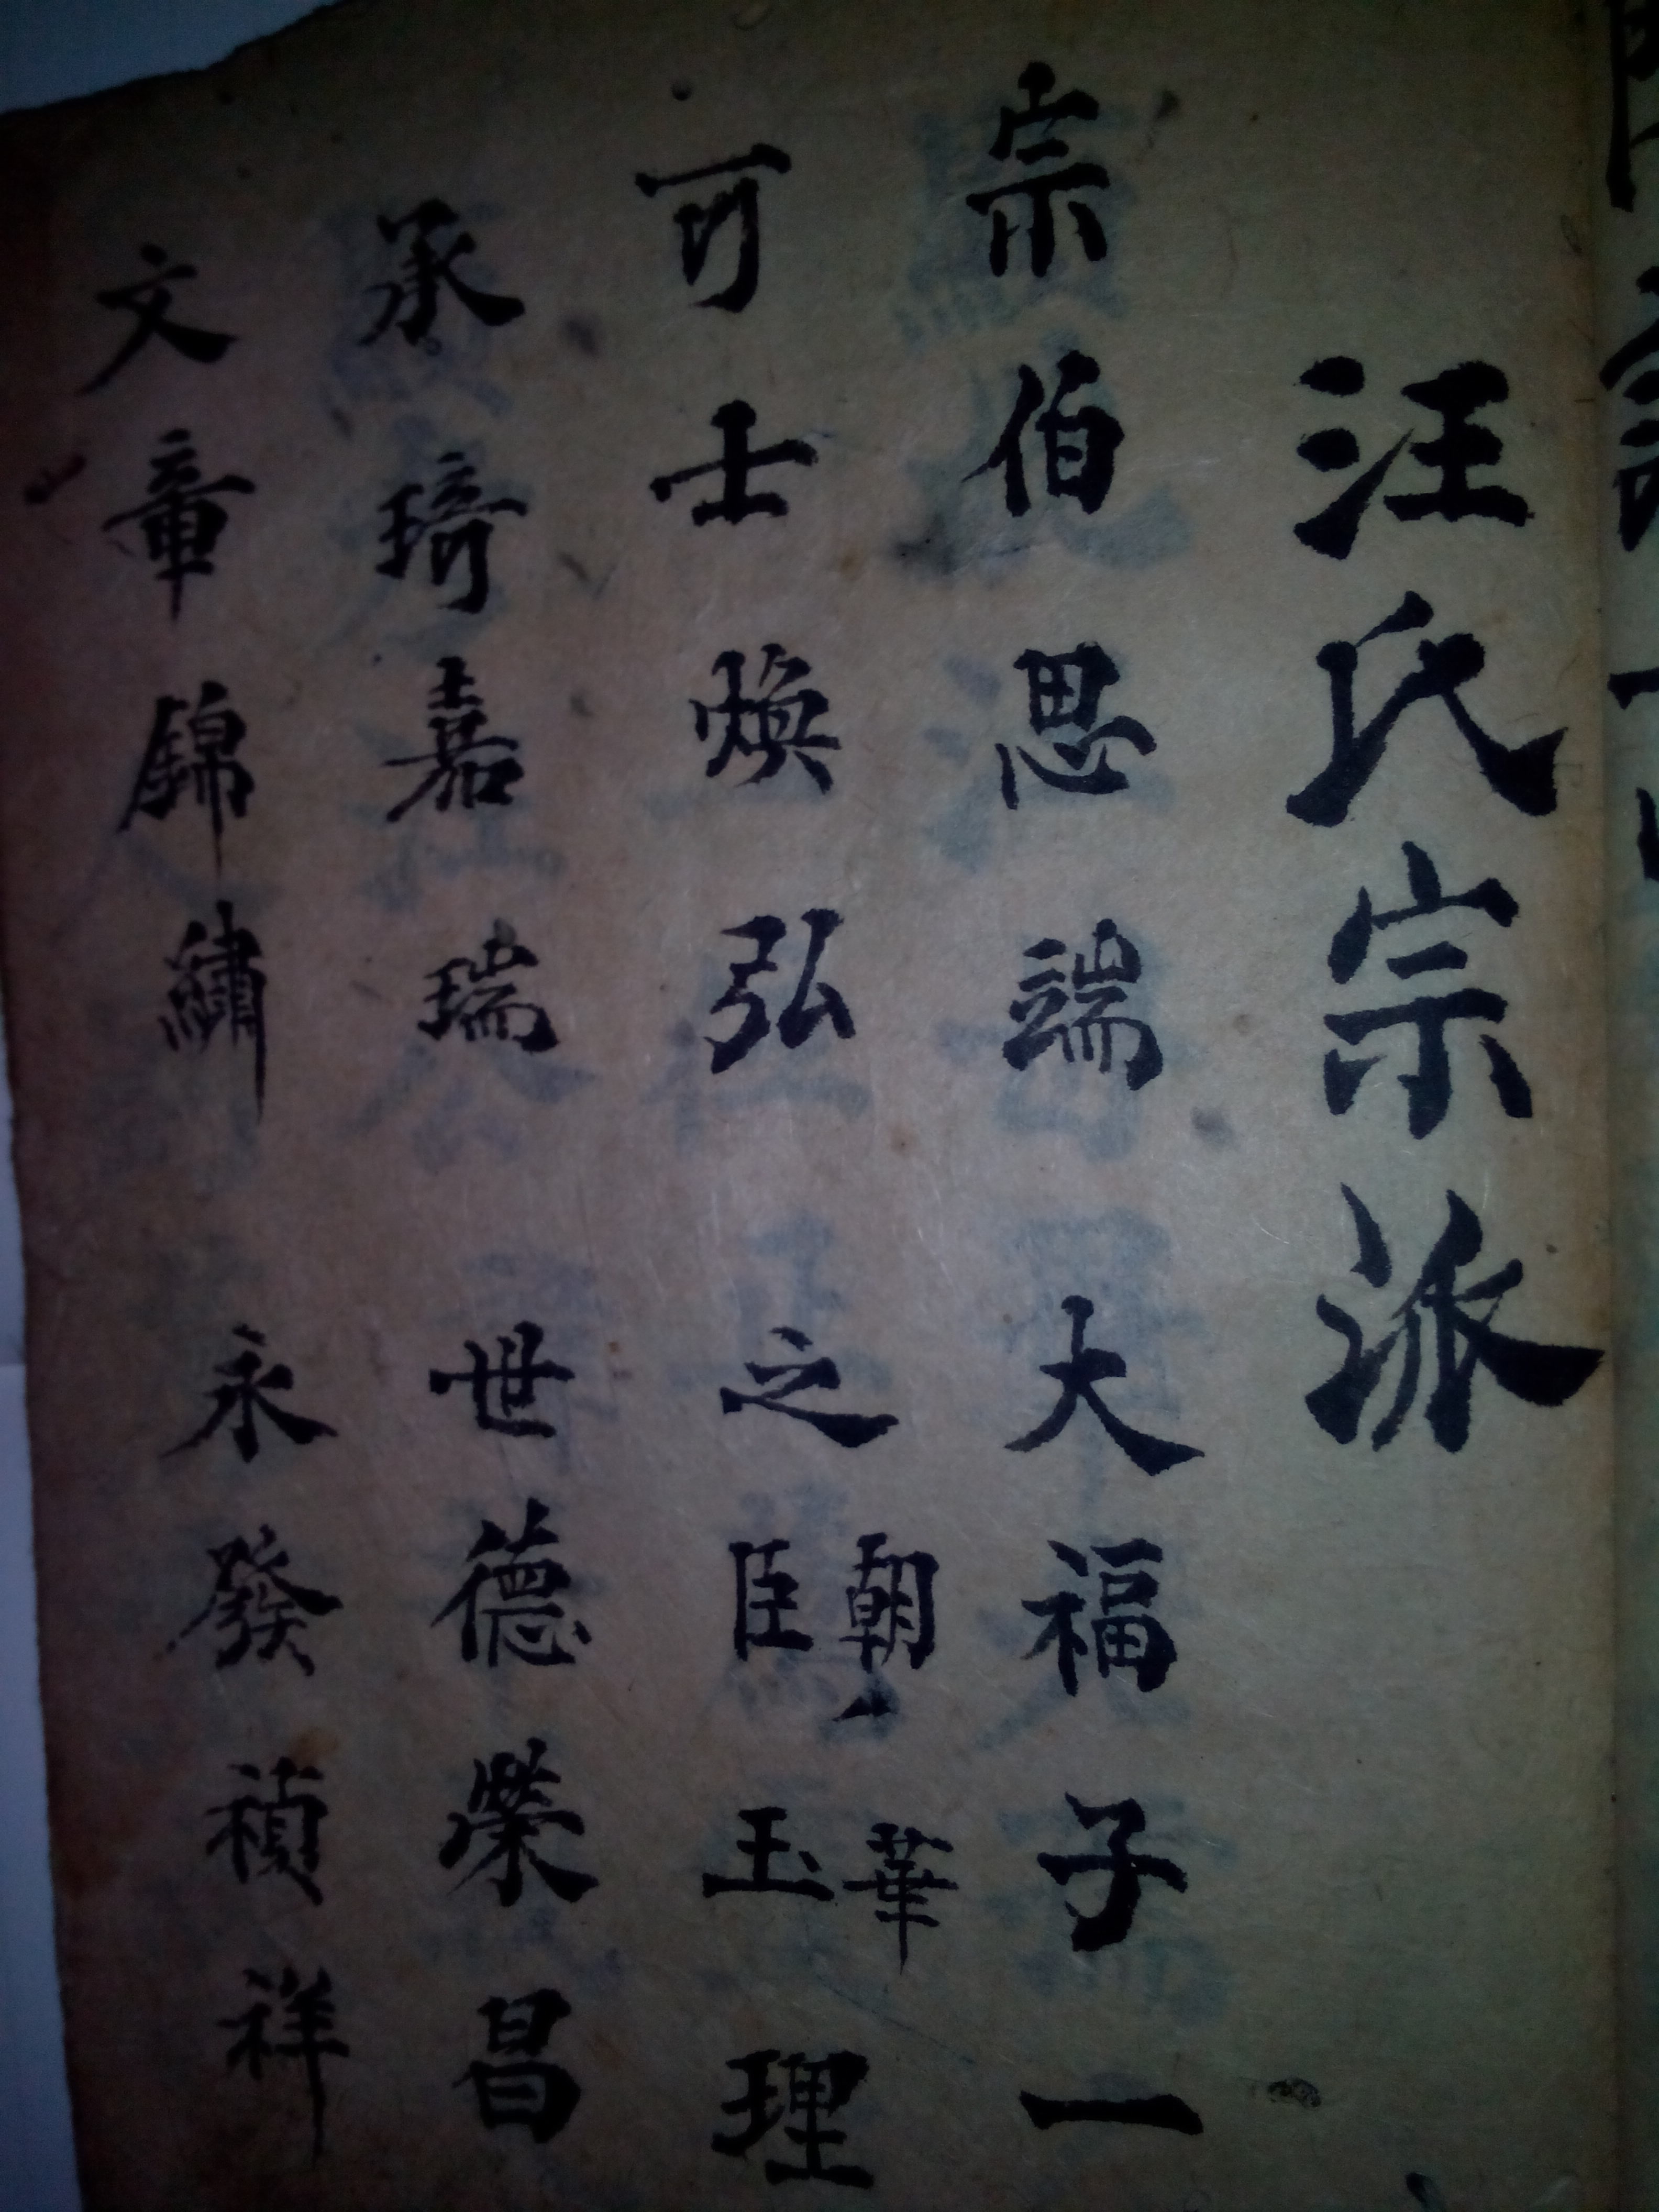 汪氏宗派
宗伯思端 大福子一
可士煥弘 之臣玉理
朝華
承琦嘉瑞 世德榮昌
文章錦繡 永發禎祥